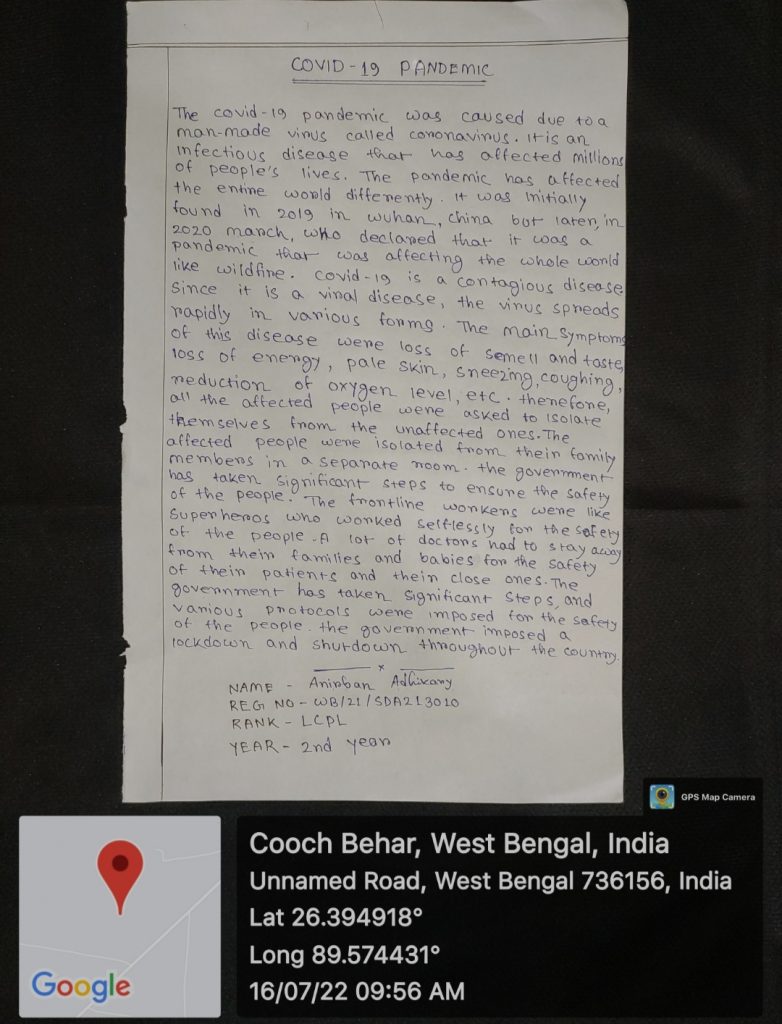 COVID-19 PANDEMIC
The covid-19 pandemic was caused due to a
man-made virus called coronavirus. It is an
infectious disease that has affected millions
of people's lives. The pandemic has affected
the entire world differently. It was initially
found in 2019 in wuhan, china but later, in
2020 march, WHO declared that it was a
pandemic that was affecting the whole world
like wildfire. covid-19 is a contagious disease.
Since it is a viral disease, the virus spreads
rapidly in various forms. The main symptoms
of this disease were loss of semell and taste,
loss of energy, pale skin, sneezing, coughing,
reduction of oxygen level, etc. therefore,
all the affected people were asked to isolate
themselves from the unaffected ones. The
affected people were isolated from their family
members in a separate room. the government
has taken significant steps to ensure the safety
of the people. The frontline workers were like
superheros who worked selflessly for the safety
of the people. A lot of doctors had to stay away
from their families and babies for the safety
of their patients and their close ones. The
government has taken significant steps, and
various protocols were imposed for the safety
of the people. the government imposed a
lockdown and shutdown throughout the country.
x
NAME - Anirban Adhikary
REG NO - WB/21/SDA213010
RANK - LCPL
YEAR - 2nd year
GPS Map Camera
Cooch Behar, West Bengal, India
Unnamed Road, West Bengal 736156, India
Lat 26.394918°
Long 89.574431°
16/07/22 09:56 AM
Google